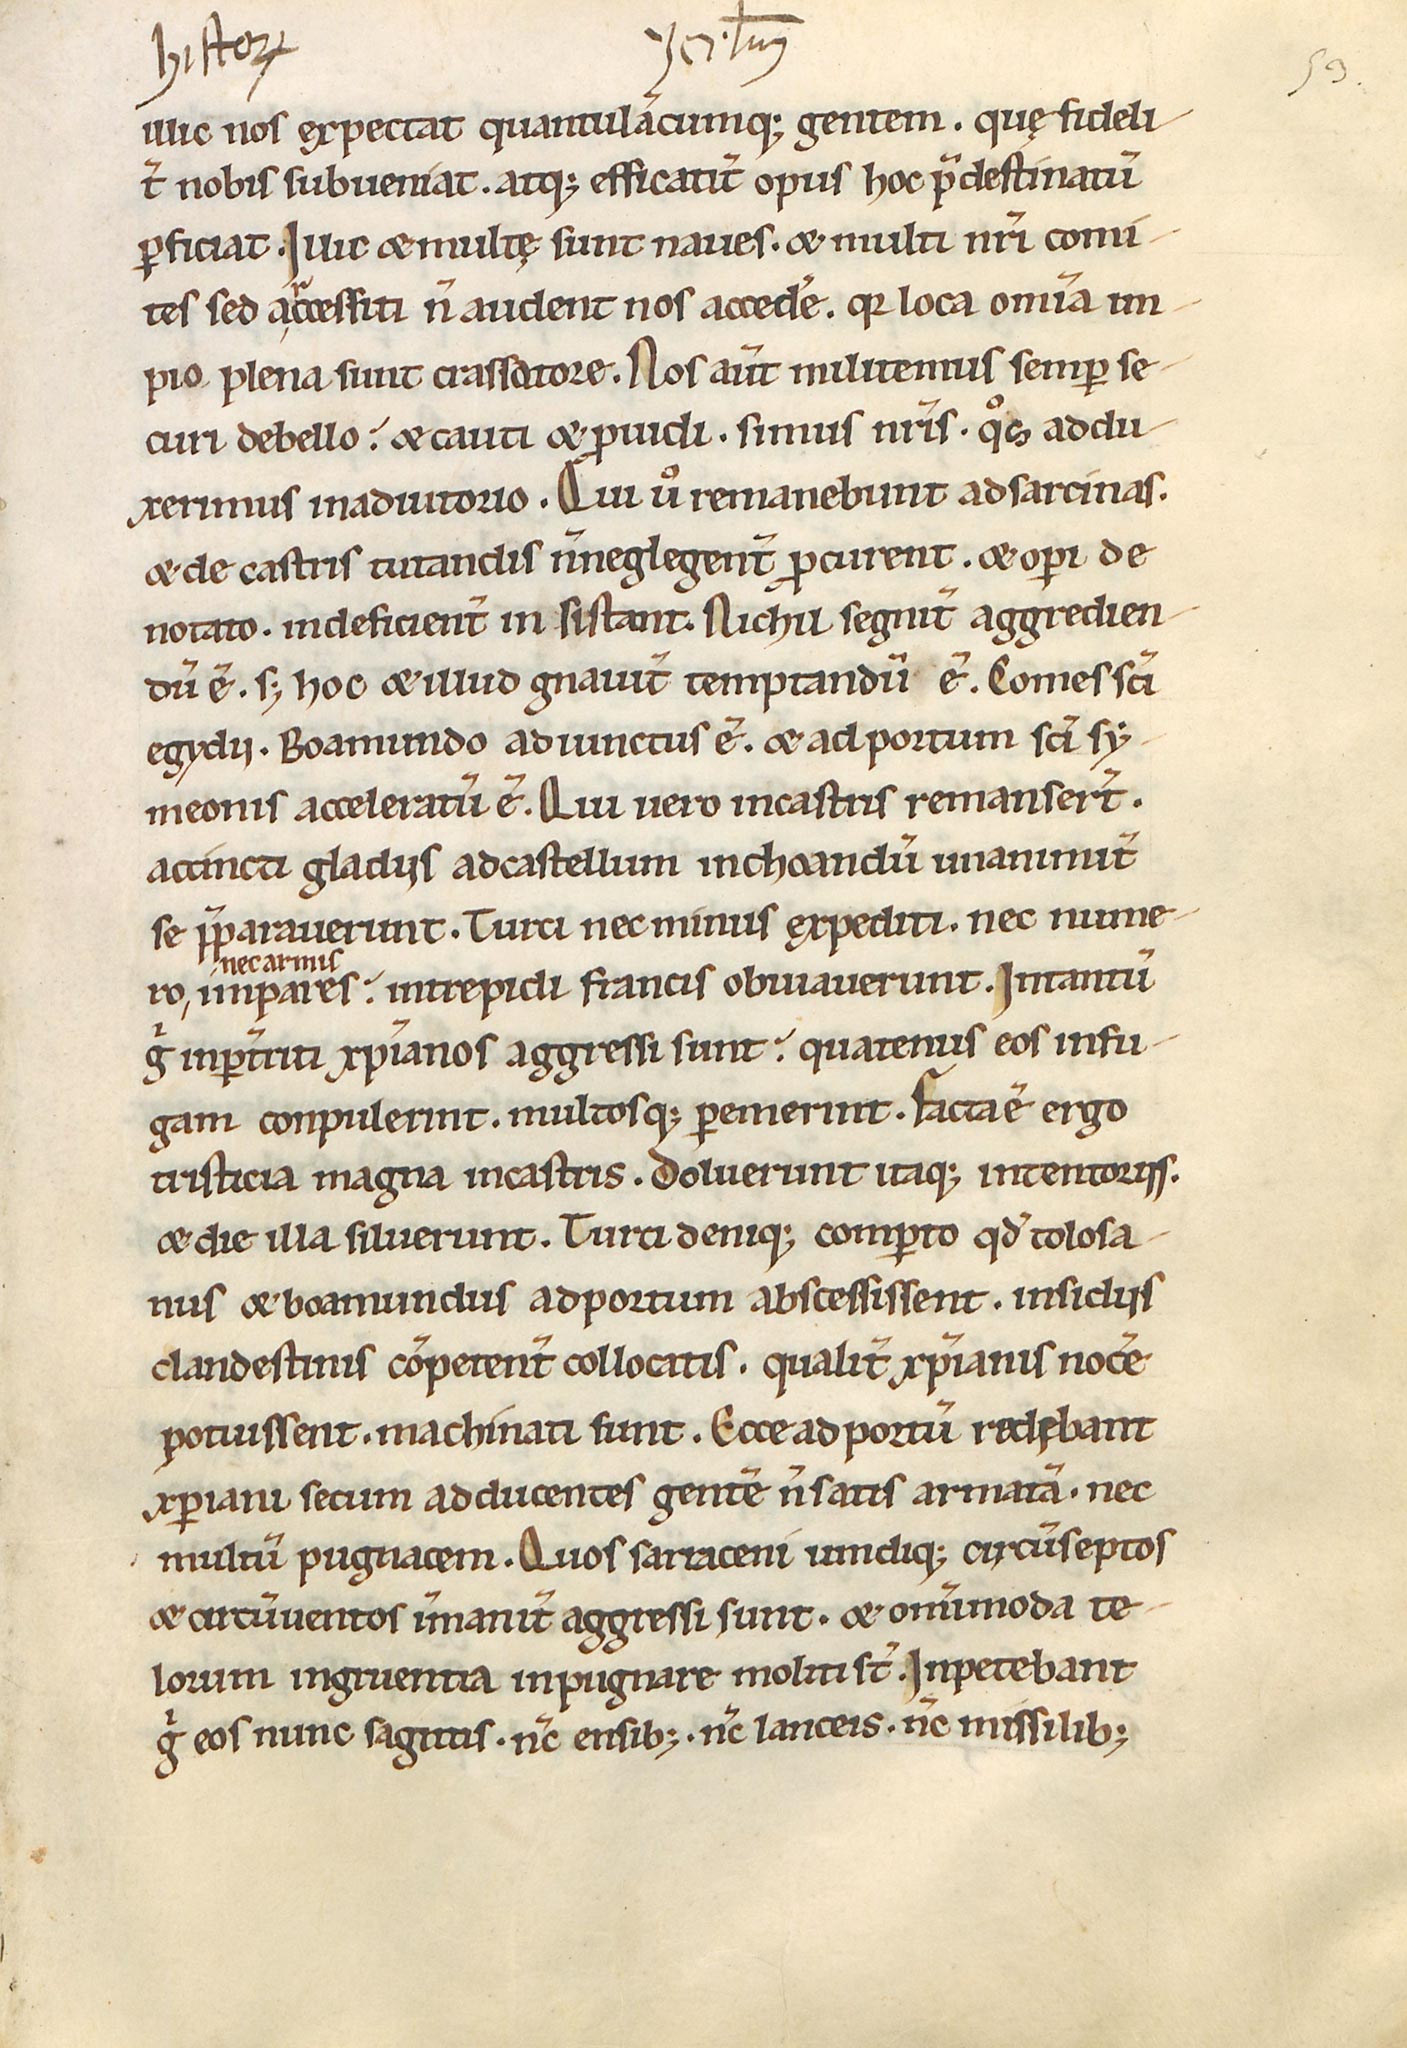 histor Jer. tm 53.
illic nos expectat quantulācumq; gentem. quę fideli-
t̄ nobis subueniat. atq; efficatit̄ opus hoc p̄destinatū
ꝑficiat. Illic & multę sunt naues. & multi nr̄i comi-
tes sed accersiti n̄ audent nos accede᷒. qꝛ loca omīa im-
pio plena sunt crassatore. Nos aūt militemus semꝑ se-
curi debello. & cauti & ꝓuidi. simus nr̄is. qͦs addu-
xerimus inadiutorio. Qui uͦ remanebunt adsarcinas.
& de castris tutandis n̄neglegent̄ ꝓcurent. & oꝑi de
notato. indeficient̄ in sistant. Nichil segnit̄ aggredien-
dū ē. s; hoc & illud gnauit̄ temptandū ē. Comes sc̄i
egydij. Boamundo adiunctus ē. & ad portum sc̄i sy-
meonis acceleratū ē. Qui uero incastris remanser̄t.
accincti gladijs adcastellum inchoandū unanimit̄
se p̄pararuerunt. Turci nec minus expediti. nec nume-
nec armis
ro, impares. intrepidi francis obuiauerunt. Intantū
g̍ inꝑt̄riti xp̄ianos aggressi sunt. quatenus eos infu-
gam conpulerint. multosq; ꝑemerint. Facta ē ergo
tristicia magna incastris. Doluerunt itaq; intentorijs.
& die illa siluerunt. Turci deniq; comꝑto qd̄ tolosa-
nus & boamundus adportum abscessissent. insidijs
clandestinis cōpetent̄ collocatis. qualit̄ xp̄ianis noce᷒
potuissent. machinati sunt. Ecce ad portū redębant
xꝑiani secum adducentes gentē n̄satis armatā. nec
multū pugnacem. Quos sarraceni undiq; circūseptos
& circūuentos īmanit̄ aggressi sunt. & omīmoda te-
lorum ingruentia inpugnare moliti st̄. Inpetebant
g̍ eos nunc sagittis. nc̄ ensib;. nc̄ lanceis. nc̄ missilib;